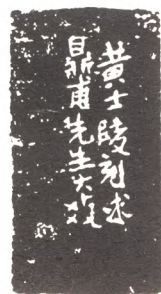 黄士陵刻求
鼎甫先生大